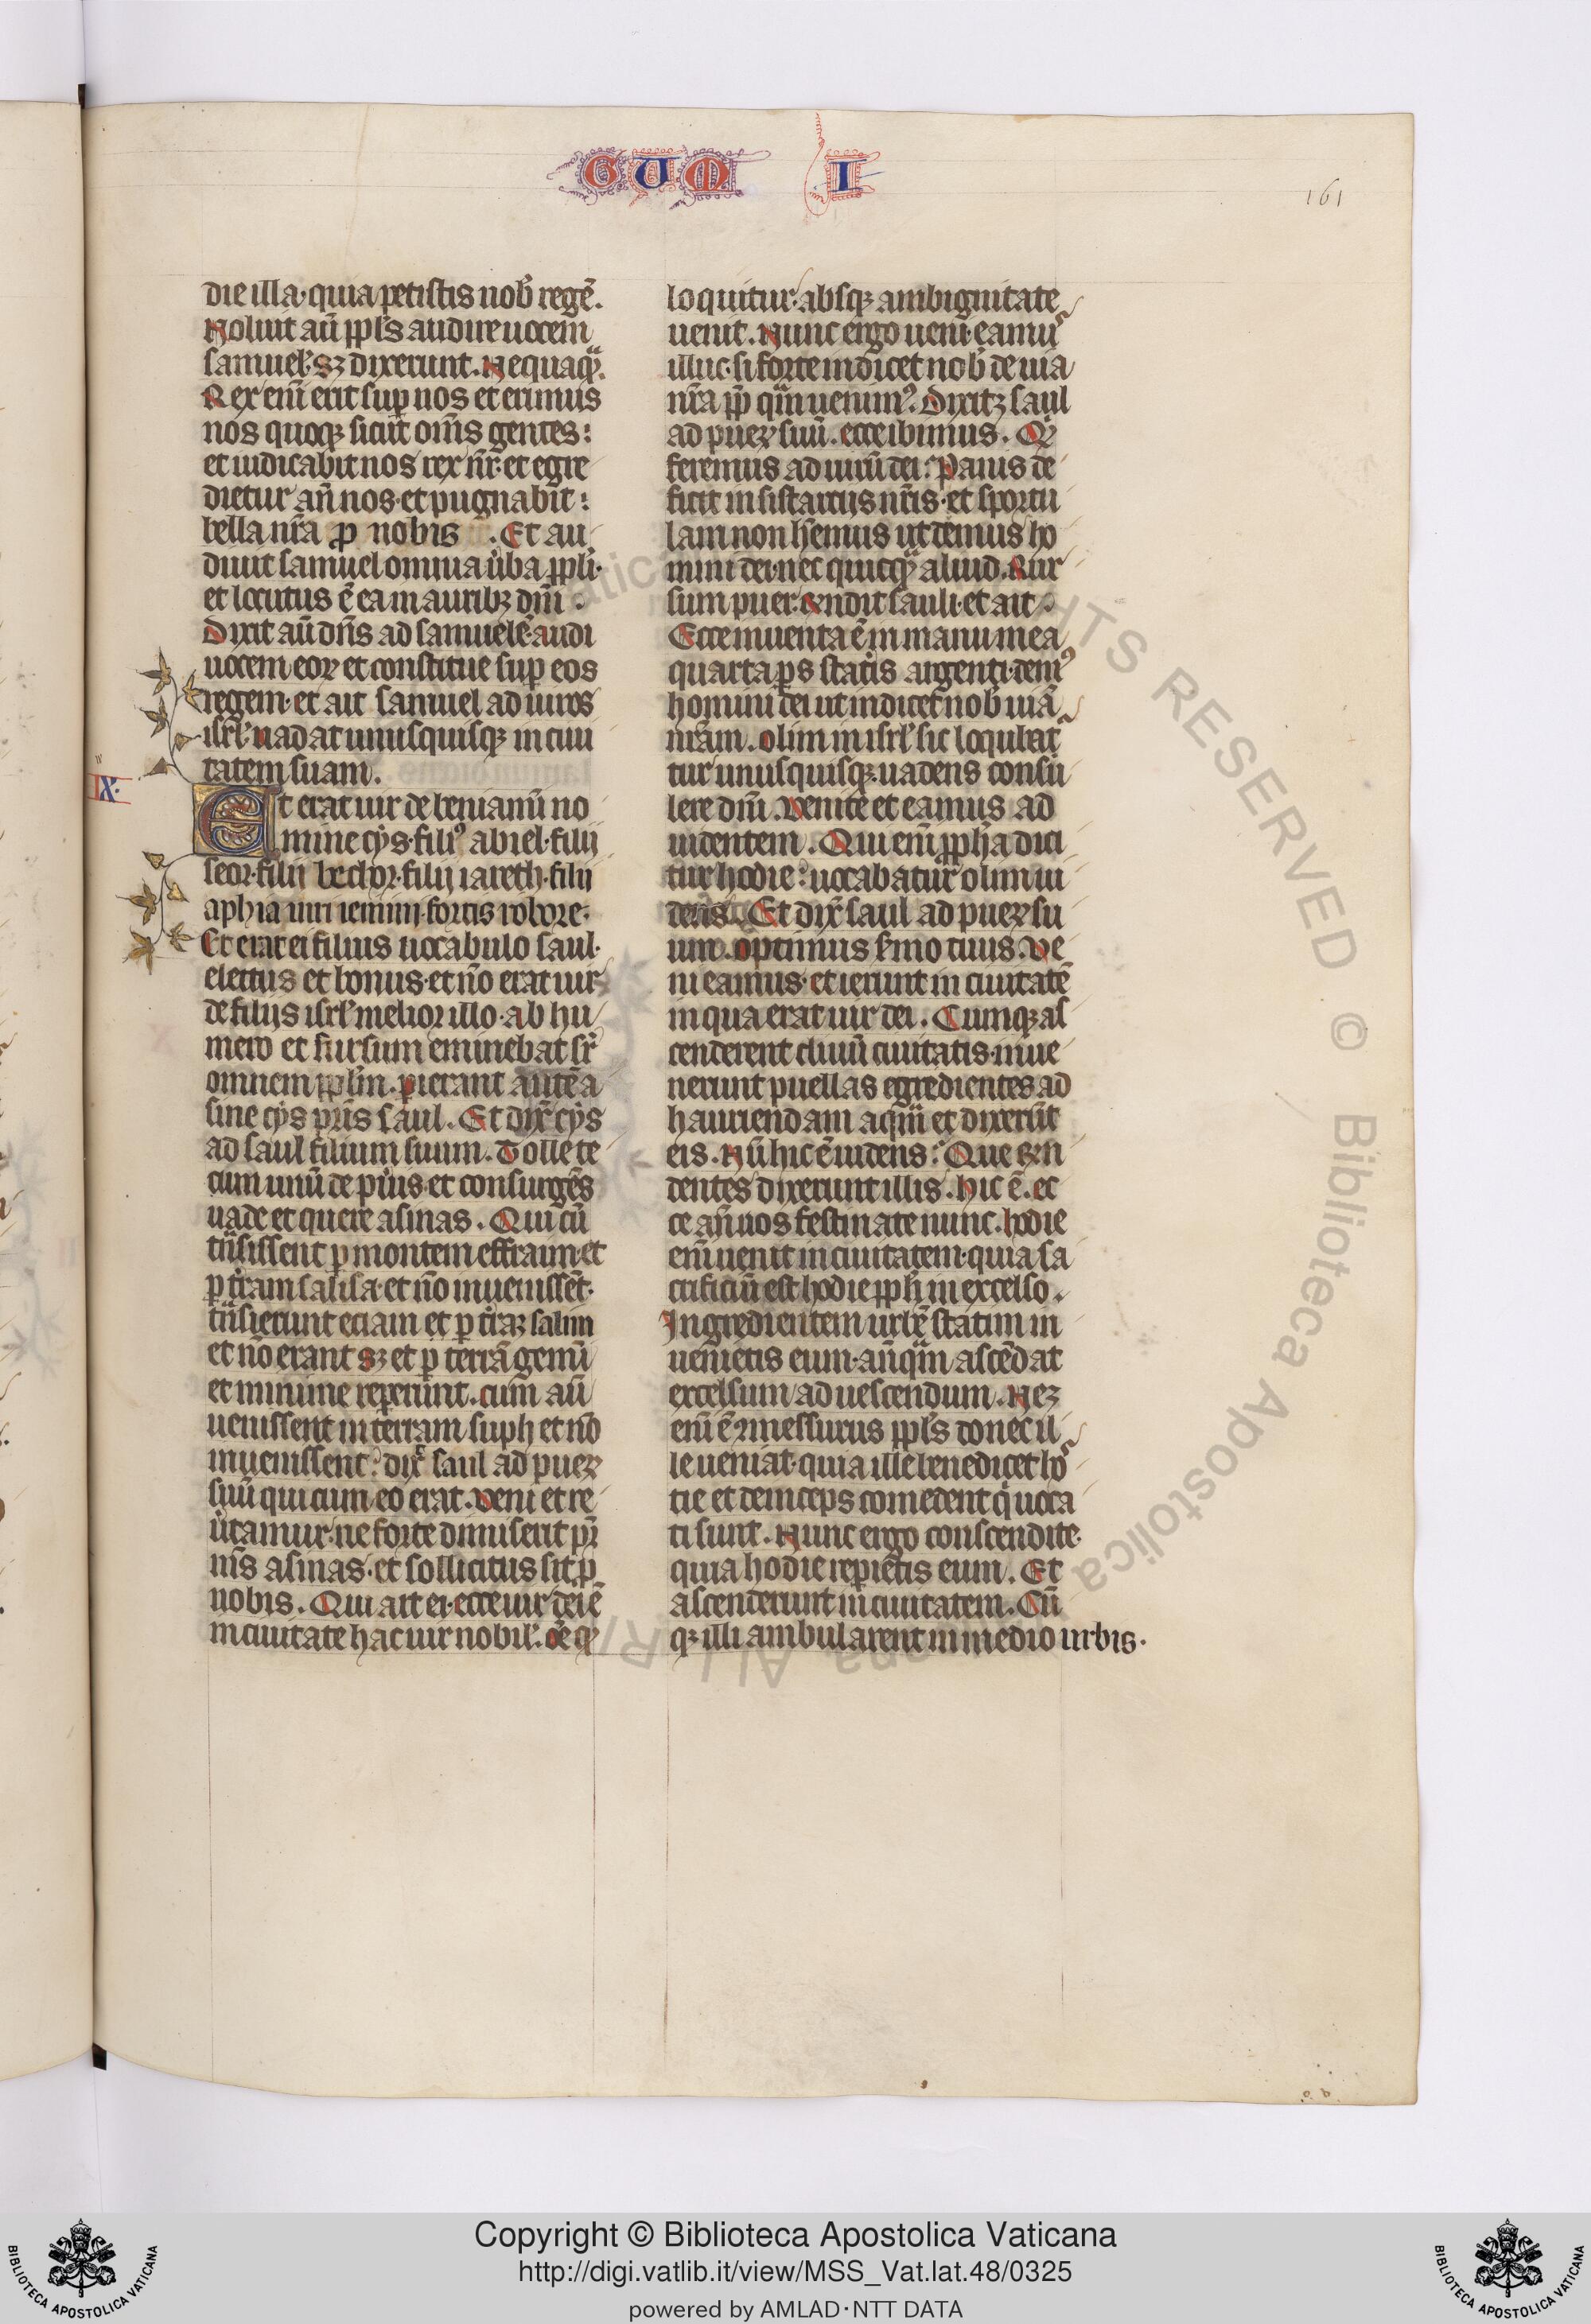 GUM I
161
die illa· quia petistis nob̄ regē.
Noluit aū pp̄ls audire uocem
samuel'· sꝫ dixerunt. Nequaqᷓ.
Rex eni̅ erit sup̱ nos et erimus
nos quoqꝫ sicut om̄s gentes:
et iudicabit nos rex nr̄· et egre
dietur an̄ nos· et pugnabit:
bella nr̄a ꝓ nobis . Et au
diuit samuel omnia u̇ba pp̄li·
et locutus ē ea in auribꝫ dn̄i .
Dixit aū dn̄s ad samuelē· audi
uocem eoꝝ et constitue sup̱ eos
regem· et ait samuel ad uiros
isrl'· uadat unusquisqꝫ in ciui
tatem suam.
IX.
Et erat uir de beniamī no
mine cys· filiꝰ abiel· filij
seor· filij bechor· filij iareth· filij
aphia uiri iemini· fortis robore·
Et erat ei filius uocabulo saul·
electus et bonus· et nō erat uir
de filijs isrl' melior illo· ab hu
mero et sursum eminebat sr̄
omnem pp̄lm. ꝑierant autē a
sine cys pr̄is saul. Et dix̄ cys
ad saul filium suum. Tolle te
cum unū de pu̇is· et consurgēs
uade et quere asinas. Qui cū
tᷓsissent ꝑ montem effraim· et
ꝑ tr̄am salisa· et nō inuenissēt·
tᷓsierunt eciam et ꝑ tr̄aꝫ salim
et nō erant sꝫ et ꝑ terrā gemī
et minime reꝑerunt. cum aū
uenissent in terram suph et nō
inuenissent· dix̄ saul ad pueꝝ
suū qui cum eo erat. Veni et re
u̇tamur· ne forte dimiserit pr̄
nr̄s asinas· et sollicitus sit ꝓ
nobis. Qui ait ei· ecce uir dei ē
in ciuitate hac uir nobil'. oē qꝫ
loquitur· absqꝫ ambiguitate
uenit. Nunc ergo ueni· eamus
illuc· si forte indicet nob̄ de uia
nr̄a pp̄ qᷓm uenimꝰ. Dixitqꝫ saul
ad pueꝝ suū. ecce ibimus. Qͥ
feremus ad uirū dei: Panis de
ficit in sistarcijs nr̄is· et sportu
lam non hēmus ut demus ho
mini dei· nec quicqᷓ aliud. Rur
sum puer· rn̄dit sauli· et ait
Ecce inuenta ē in manu mea
quarta ꝑs statis argenti· demꝰ
homini dei ut indicet nob̄ uiā
nr̄am. Olim in isrl' sic loqubat
tur unusquisqꝫ uadens consu
lere dm̄. Venite et eamus ad
uidentem. Qui eni̅ pp̄ha dici
tur hodie· uocabatur olim ui
dens. Et dix̄ saul ad pueꝝ su
um. Optimus s̄mo tuus. Ve
ni eamus· et ierunt in ciuitatē
in qua erat uir dei. Cumqꝫ as
cenderent cliuū ciuitatis· inue
nerunt puellas egredientes ad
hauriendam aqᷓm et dixerūt
eis. Nū hic ē uidens: Que rn̄
dentes dixerunt illis. Hic ē. ec
ce an̄ uos festinate nunc. hodie
eni̅ uenit in ciuitatem· quia sa
crificiū est hodie pp̄li in excelso.
Ingredientem urbē statim in
uenietis eum· an̄qᷓm ascēdat
excelsum ad uescendum. Neqꝫ
eni̅ ē ꝯmessurus pp̄ls donec il
le ueniat· quia ille benedicet hos
tie et deinceps comedent qͥ uoca
ti sunt. Nunc ergo conscendite·
quia hodie reꝑietis eum. Et
ascenderunt in ciuitatem. Cū
qꝫ illi ambularent in medio urbis·
Copyright © Biblioteca Apostolica Vaticana
http://digi.vatlib.it/view/MSS_Vat.lat.48/0325
powered by AMLAD·NTT DATA
BIBLIOTECA APOSTOLICA VATICANA
BIBLIOTECA APOSTOLICA VATICANA